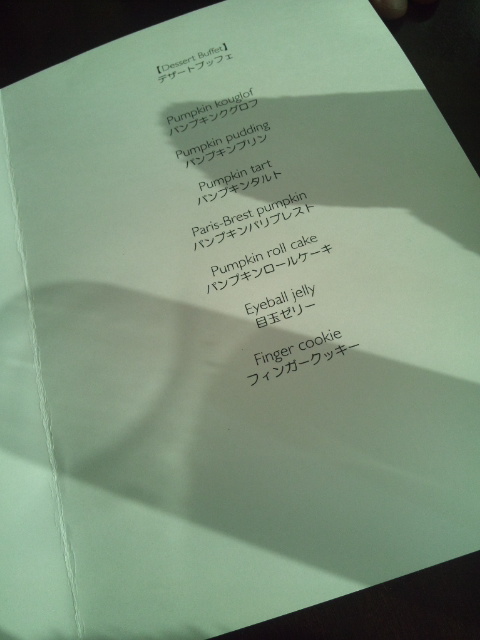 【Dessert Buffet】
デザートブッフェ
Pumpkin kouglof
パンプキンクグロフ
Pumpkin pudding
パンプキンプリン
Pumpkin tart
パンプキンタルト
Paris-Brest pumpkin
パンプキンパリブレスト
Pumpkin roll cake
パンプキンロールケーキ
Eyeball jelly
目玉ゼリー
Finger cookie
フィンガークッキー